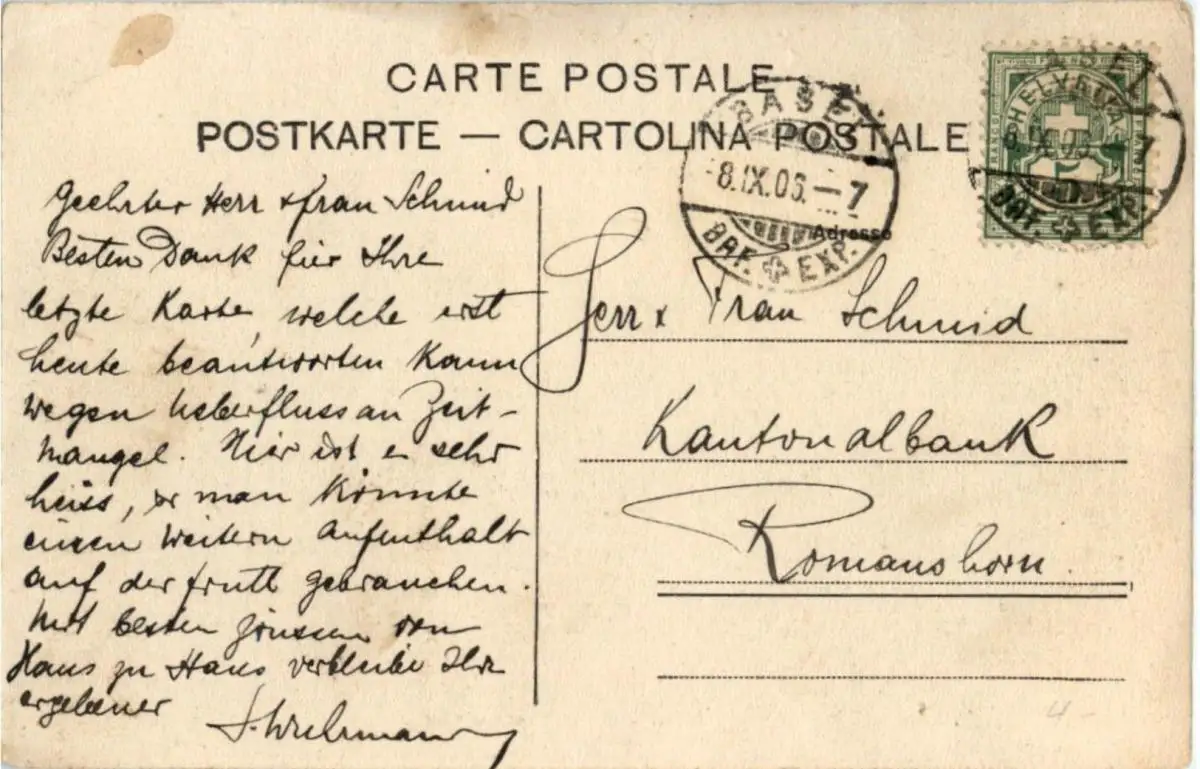 CARTE POSTALE
POSTKARTE — CARTOLINA POSTALE
HELVETIA
5
BASEL
8.IX.06.—7
BRF. EXP.
BASEL
8.IX.06.—7
BRF. EXP.
Adresse
Geehrter Herr & Frau Schmid
Besten Dank für Ihre
letzte Karte, welche erst
heute beantworten kann
wegen Ueberfluss an Zeit-
mangel. Hier ist es sehr
heiss, man könnte
einen weitern Aufenthalt
auf der Frutt gebrauchen.
Mit besten Grüssen von
Haus zu Haus verbleibe Ihr
ergebener
Herr & Frau Schmid
Kantonalbank
Romanshorn.